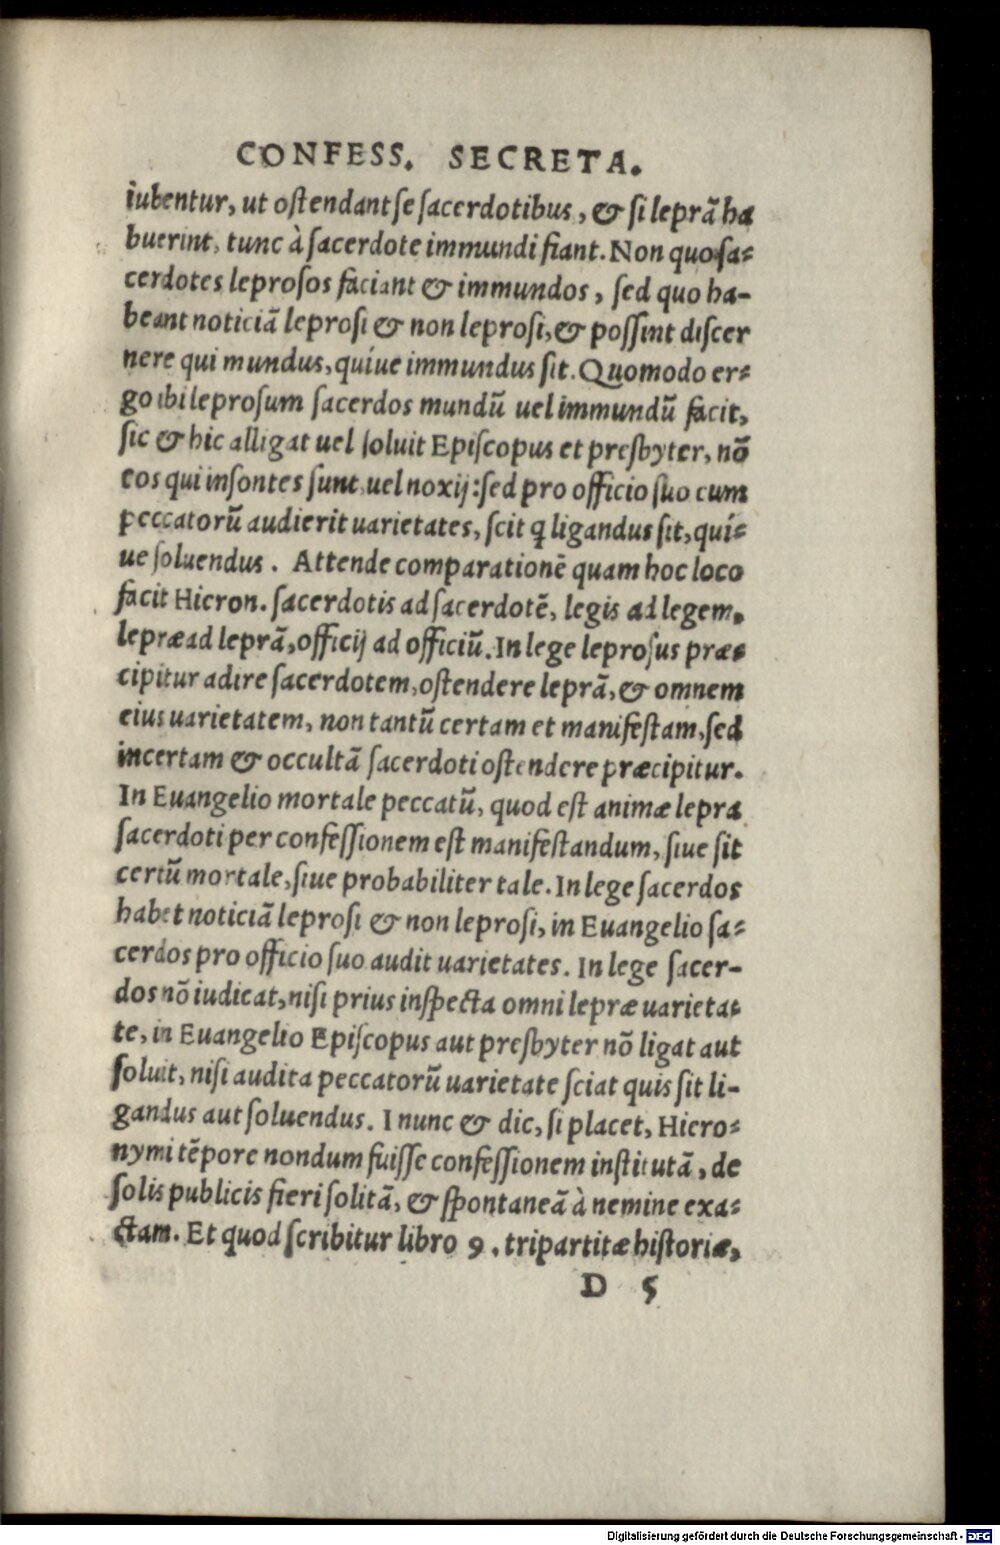 CONFESS. SECRETA.
iubentur, ut ostendant se sacerdotibus, & si leprā ha
buerint, tunc à sacerdote immundi fiant. Non quo sa=
cerdotes leprosos faciant & immundos, sed quo ha-
beant noticiā leprosi & non leprosi, & possint discer
nere qui mundus, quiue immundus sit. Quomodo er=
go ibi leprosum sacerdos mundū uel immundū facit,
sic & hic alligat uel soluit Episcopus et presbyter, nō
eos qui insontes sunt uel noxij: sed pro officio suo cum
peccatorū audierit uarietates, scit q ligandus sit, qui=
ue soluendus. Attende comparationē quam hoc loco
facit Hieron. sacerdotis ad sacerdotē, legis ad legem,
lepræ ad leprā, officij ad officiū. In lege leprosus præ=
cipitur adire sacerdotem, ostendere leprā, & omnem
eius uarietatem, non tantū certam et manifestam, sed
incertam & occultā sacerdoti ostendere præcipitur.
In Euangelio mortale peccatū, quod est animæ lepra
sacerdoti per confessionem est manifestandum, siue sit
certū mortale, siue probabiliter tale. In lege sacerdos
habet noticiā leprosi & non leprosi, in Euangelio sa=
cerdos pro officio suo audit uarietates. In lege sacer-
dos nō iudicat, nisi prius inspecta omni lepræ uarieta=
te, in Euangelio Episcopus aut presbyter nō ligat aut
soluit, nisi audita peccatorū uarietate sciat quis sit li-
gandus aut soluendus. I nunc & dic, si placet, Hiero=
nymi tēpore nondum fuisse confessionem institutā, de
solis publicis fieri solitā, & spontaneā à nemine exa=
ctam. Et quod scribitur libro 9. tripartitæ historiæ,
D 5
Digitalisierung gefördert durch die Deutsche Forschungsgemeinschaft - DFG